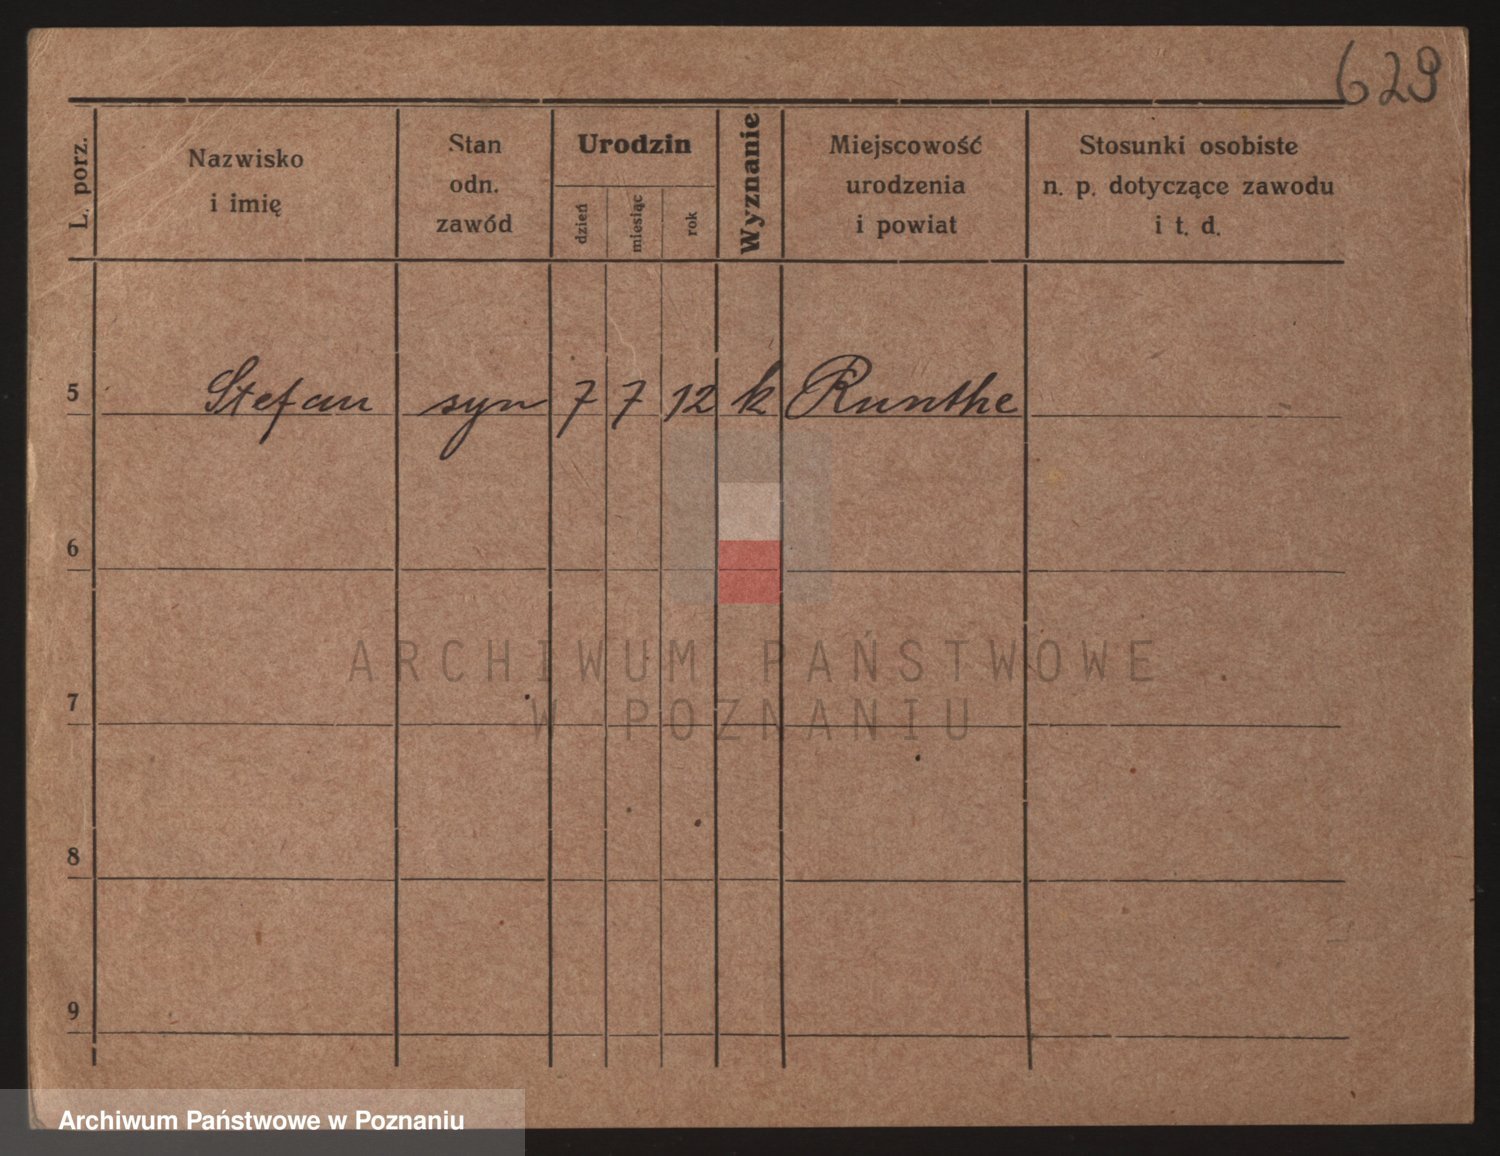 629
L. porz.
Nazwisko
i imię
Stan
odn.
zawód
Urodzin
dzień
miesiąc
rok
Wyznanie
Miejscowość
urodzenia
i powiat
Stosunki osobiste
n. p. dotyczące zawodu
i t. d.
5 Stefan syn 7 7 12 k Runthe
6
7
8
9
ARCHIWUM PAŃSTWOWE
W POZNANIU
Archiwum Państwowe w Poznaniu